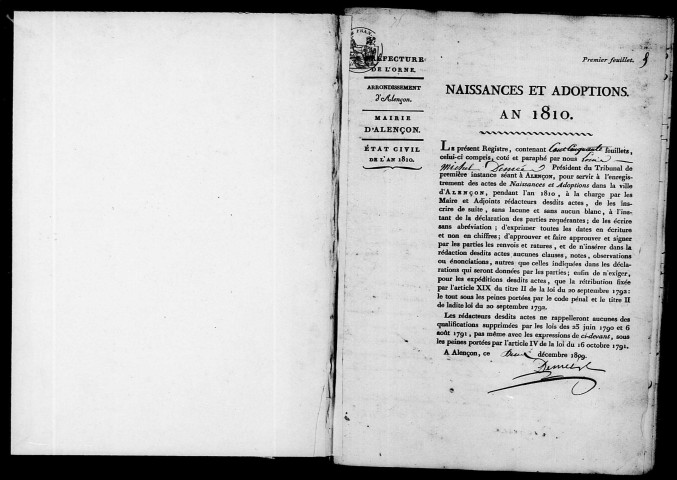 PRÉFECTURE
DE L'ORNE.
ARRONDISSEMENT
d'Alençon.
MAIRIE
D'ALENÇON.
ÉTAT CIVIL
DE L'AN 1810.
Premier feuillet.
NAISSANCES ET ADOPTIONS.
AN 1810.
LE présent Registre, contenant Cent Cinquante feuillets,
celui-ci compris, coté et paraphé par nous
Michel Demées Président du Tribunal de
première instance séant à ALENÇON, pour servir à l'enregis-
trement des actes de Naissances et Adoptions dans la ville
d'ALENÇON, pendant l'an 1810, à la charge par les
Maire et Adjoints rédacteurs desdits actes, de les ins-
crire de suite, sans lacune et sans aucun blanc, à l'ins-
tant de la déclaration des parties requérantes; de les écrire
sans abréviation; d'exprimer toutes les dates en écriture
et non en chiffres; d'approuver et faire approuver et signer
par les parties les renvois et ratures, et de n'insérer dans la
rédaction desdits actes aucunes clauses, notes, observations
ou énonciations, autres que celles indiquées dans les décla-
rations qui seront données par les parties; enfin de n'exiger,
pour les expéditions desdits actes, que la rétribution fixée
par l'article XIX du titre II de la loi du 20 septembre 1792:
le tout sous les peines portées par le code pénal et le titre II
de ladite loi du 20 septembre 1792.
Les rédacteurs desdits actes ne rappelleront aucunes des
qualifications supprimées par les lois des 23 juin 1790 et 6
août 1791, pas même avec les expressions de ci-devant, sous
les peines portées par l'article IV de la loi du 16 octobre 1791.
A Alençon, ce deux décembre 1809.
Demées